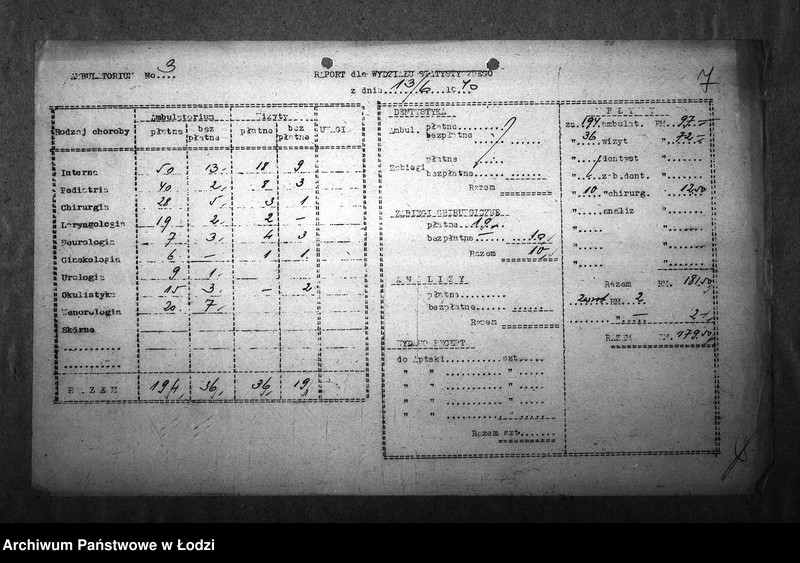 AMBULATORIUM No 3
RAPORT dla WYDZIAŁU STATYSTYCZNEGO
z dnia 13/6 1940
7
Rodzaj choroby
Ambulatorium
Wizyty
płatne
bez płatne
płatne
bez płatne
UWAGI
Interna 50 13 18 9
Pediatria 40 2 8 3
Chirurgia 28 5 3 1
Laryngologia 19 2 2 —
Neurologia 7 3 4 3
Ginekologia 6 — 1 1
Urologia 9 1
Okulistyka 15 3 — 2
Wenerologia 20 7
Skórne
RAZEM 194 36 36 19
DENTYSTYKA
Ambul. płatne
bezpłatne
Zabiegi płatne
bezpłatne
Razem
ZABIEGI CHIRURGICZNE
płatne 10
bezpłatne — 10
Razem 10
ANALIZY
płatne
bezpłatne
Razem
WYDANO RECEPT
do Apteki szt
" " "
" " "
" " "
" " "
Razem szt
za 194 ambulat. RM. 97.—
" 36 wizyt " 72.—
" dentyst "
" zab.dent. "
" 10 "chirurg. " 12.50
" analiz "
" "
" "
" "
Razem RM. 181.50
RM. 2
" — 2.—
RAZEM RM. 179.50
Archiwum Państwowe w Łodzi